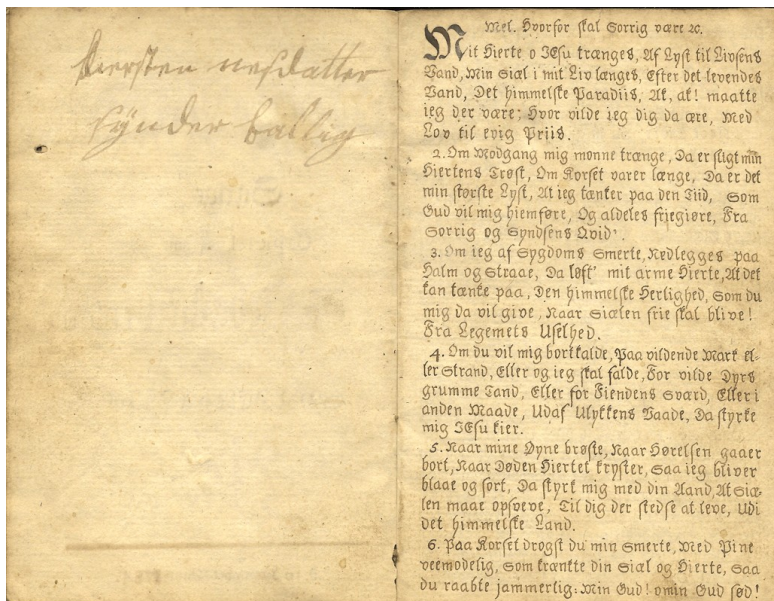 Kiersten nesdatter
hÿnder ballig
Mel. Hvorfor skal Sorrig være ꝛc.
Mit Hierte o JEsu trænges, Af Lyst til Livsens
Vand, Min Siæl i mit Liv længes, Efter det levendes
Vand, Det himmelske Paradiis, Ak, ak! maatte
ieg der være; Hvor vilde ieg dig da ære, Med
Lov til evig Priis.
2. Om Modgang mig monne trænge, Da er sligt min
Hiertens Trøst, Om Korset varer længe, Da er det
min største Lyst, At ieg tænker paa den Tiid, Som
Gud vil mig hiemføre, Og aldeles friegiøre, Fra
Sorrig og Syndsens Qvid'.
3. Om ieg af Sygdoms Smerte, Nedlegges paa
Halm og Straae, Da løft' mit arme Hierte, At det
kan tænke paa, Den himmelske Herlighed, Som du
mig da vil give, Naar Siælen frie skal blive!
Fra Legemets Uselhed.
4. Om du vil mig bortkalde, Paa vildende Mark el-
ler Strand, Eller og ieg skal falde, For vilde Dyrs
grumme Tand, Eller for Fiendens Sværd, Eller i
anden Maade, Udaf Ulykkens Vaade, Da styrke
mig JEsu kier.
5. Naar mine Øyne brøste, Naar Hørelsen gaaer
bort, Naar Døden Hiertet kryster, Saa ieg bliver
blaae og sort, Da styrk mig med din Aand, At Siæ-
len maae opsveve, Til dig der stedse at leve, Udi
det himmelske Land.
6. Paa Korset drogst du min Smerte, Med Pine
veemodelig, Som krænkte din Siæl og Hierte, Saa
du raabte jammerlig: Min Gud! o min Gud sød!